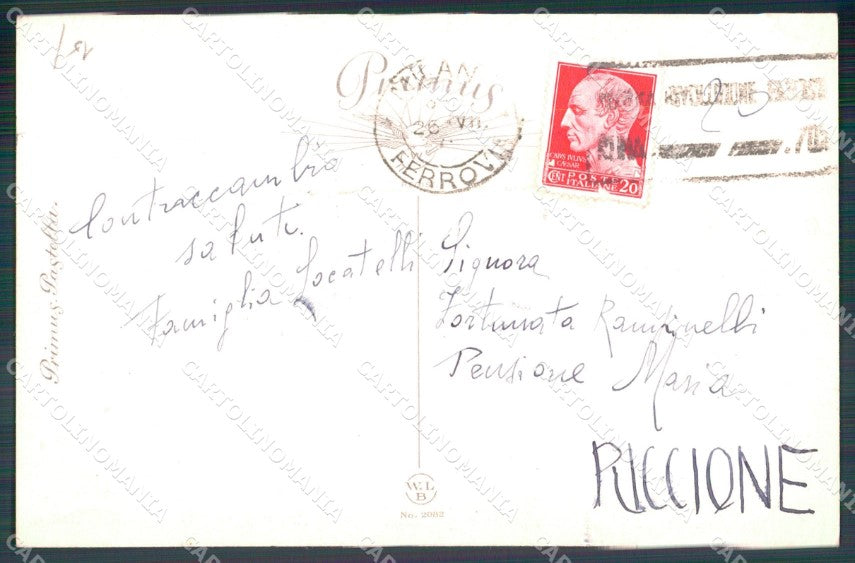 Primus
MILAN
26 VII
FERROVIA
CAIVS IVLIVS
CAESAR
POSTE
CENT ITALIANE 20
Contraccambia
saluti.
Famiglia Locatelli
Signora
Fortunata Rampinelli
Pensione Maria
RICCIONE
Primus-Pastella.
W.L
B
No. 2082
CARTOLINOMANIA